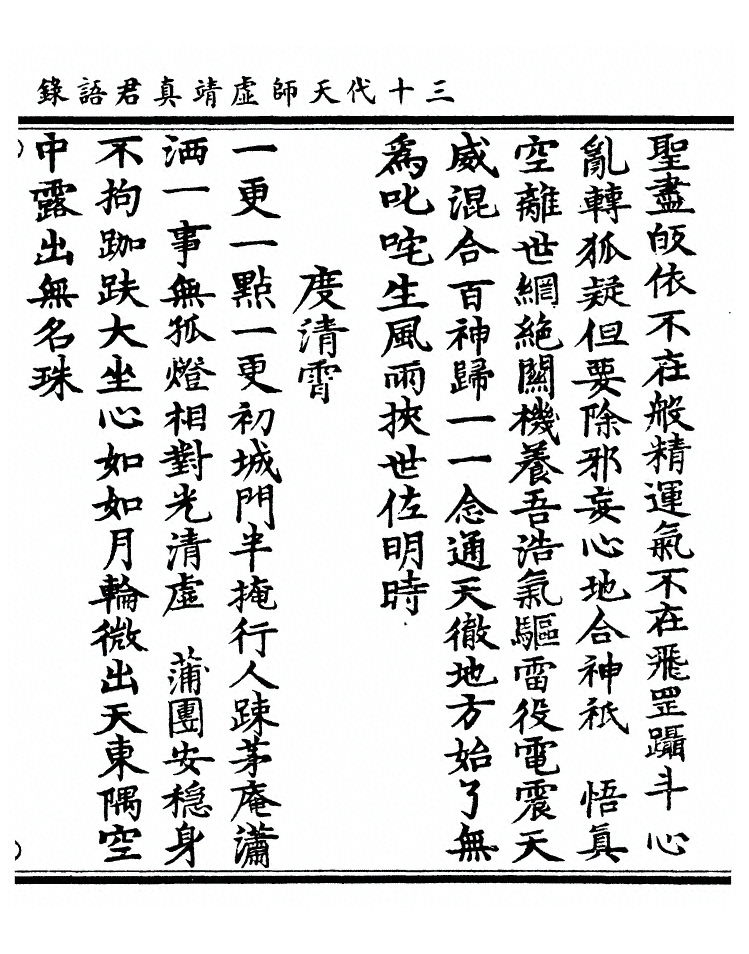 三十代天師虛靖真君語錄
聖盡皈依不在般精運氣不在飛罡躡斗心
亂轉狐疑但要除邪妄心地合神祇　悟真
空離世網絕關機養吾浩氣驅雷役電震天
威混合百神歸一一念通天徹地方始了無
爲叱咤生風雨挾世佐明時
度清霄
一更一點一更初城門半掩行人踈茅庵瀟
洒一事無孤燈相對光清虛　蒲團安穩身
不拘跏趺大坐心如如月輪微出天東隅空
中露出無名珠